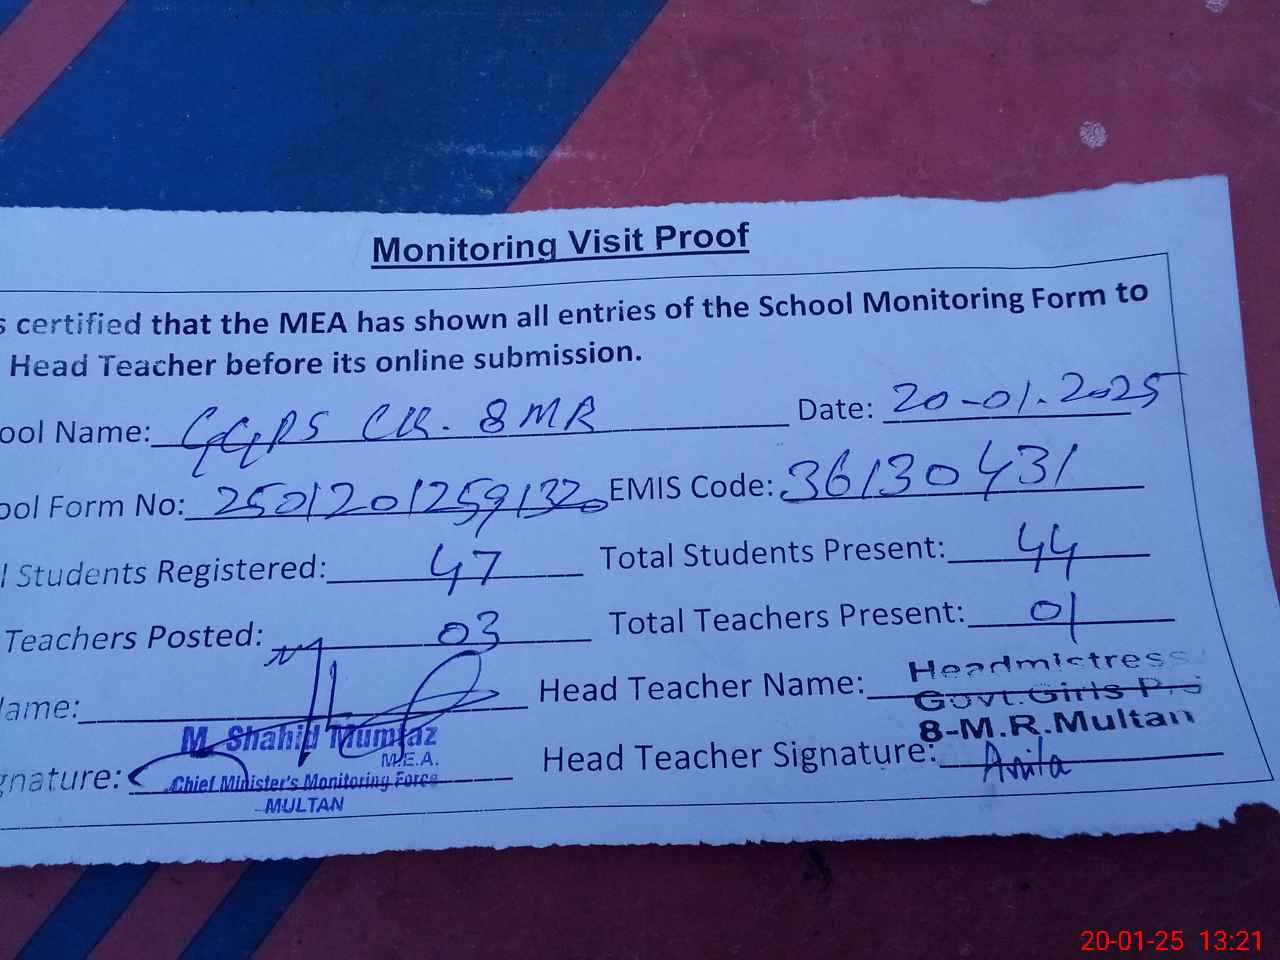 Monitoring Visit Proof
s certified that the MEA has shown all entries of the School Monitoring Form to
Head Teacher before its online submission.
ool Name: GGPS CH. 8MR Date: 20-01-2025
ool Form No: 2501201259132 EMIS Code: 36130431
l Students Registered: 47 Total Students Present: 44
Teachers Posted: 03 Total Teachers Present: 01
lame: Head Teacher Name: Headmistress
Govt.Girls P.S
8-M.R.Multan
M. Shahid Mumtaz
M.E.A.
gnature: Chief Minister's Monitoring Force
MULTAN
Head Teacher Signature: Anila
20-01-25 13:21